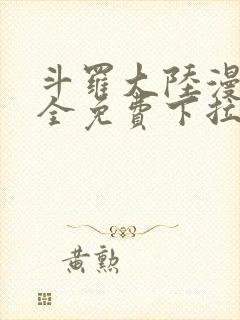 斗羅大陸漫
全免費下拉
黃勲